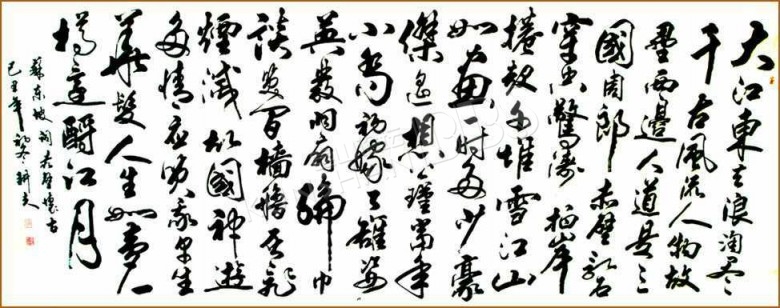 大江東去浪淘盡
千古風流人物故
壘西邊人道是三
國周郎赤壁亂石
穿空驚濤拍岸
捲起千堆雪江山
如畫一時多少豪
傑遙想公瑾當年
小喬初嫁了雄姿
英發羽扇綸巾
談笑間檣艣灰飛
煙滅故國神遊
多情應笑我早生
華髮人生如夢一
樽還酹江月
蘇東坡詞赤壁懷古
己丑年初冬耕夫